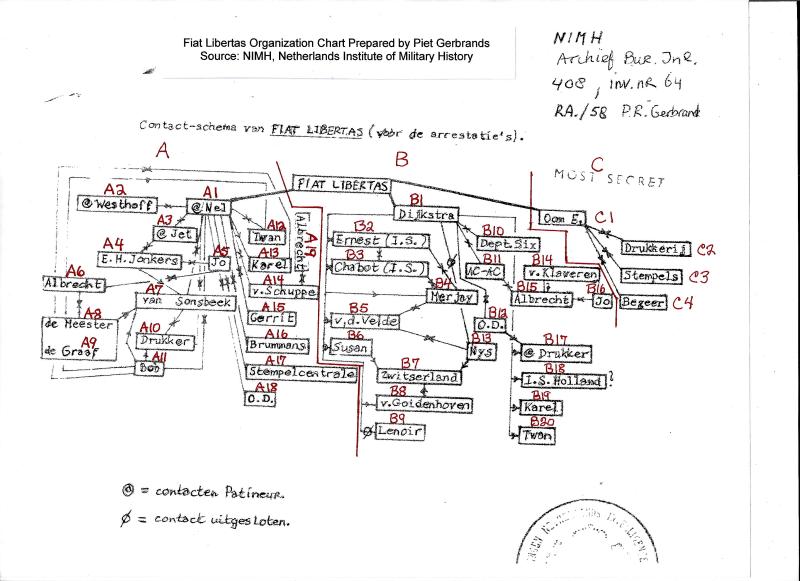 Fiat Libertas Organization Chart Prepared by Piet Gerbrands
Source: NIMH, Netherlands Institute of Military History
NIMH
Archief Bur. Inl.
408, inv. nr 64
RA./58 P.R. Gerbrand
Contact-schema van FIAT LIBERTAS (vóór de arrestatie's).
A
B
C
MOST SECRET
FIAT LIBERTAS
A1
@ Nel
A2
@ Westhoff
A3
@ Jet
A4
E.H. Jonkers
A5
Jo
A6
Albrecht
A7
van Sonsbeek
A8
de Meester
A9
de Graaf
A10
Drukker
A11
Bob
A12
Twan
A13
Karel
A14
v. Schuppe
A15
Gerrit
A16
Brummans
A17
Stempelcentrale
A18
O.D.
A19
Albrecht
B1
Dijkstra
B2
Ernest (I.S.)
B3
Chabot (I.S.)
B4
Merjay
B5
v.d. Velde
B6
Susan
B7
Zwitserland
B8
v. Goidenhoven
B9
Lenoir
B10
Dept. Six
B11
AC-AC
B12
O.D.
B13
Nys
B14
v. Klaveren
B15
Albrecht
B16
Jo
B17
@ Drukker
B18
I.S. Holland ?
B19
Karel
B20
Twan
Oom E.
C1
Drukkerij
C2
Stempels
C3
Begeer
C4
@ = contacten Patineur.
ø = contact uitgesloten.